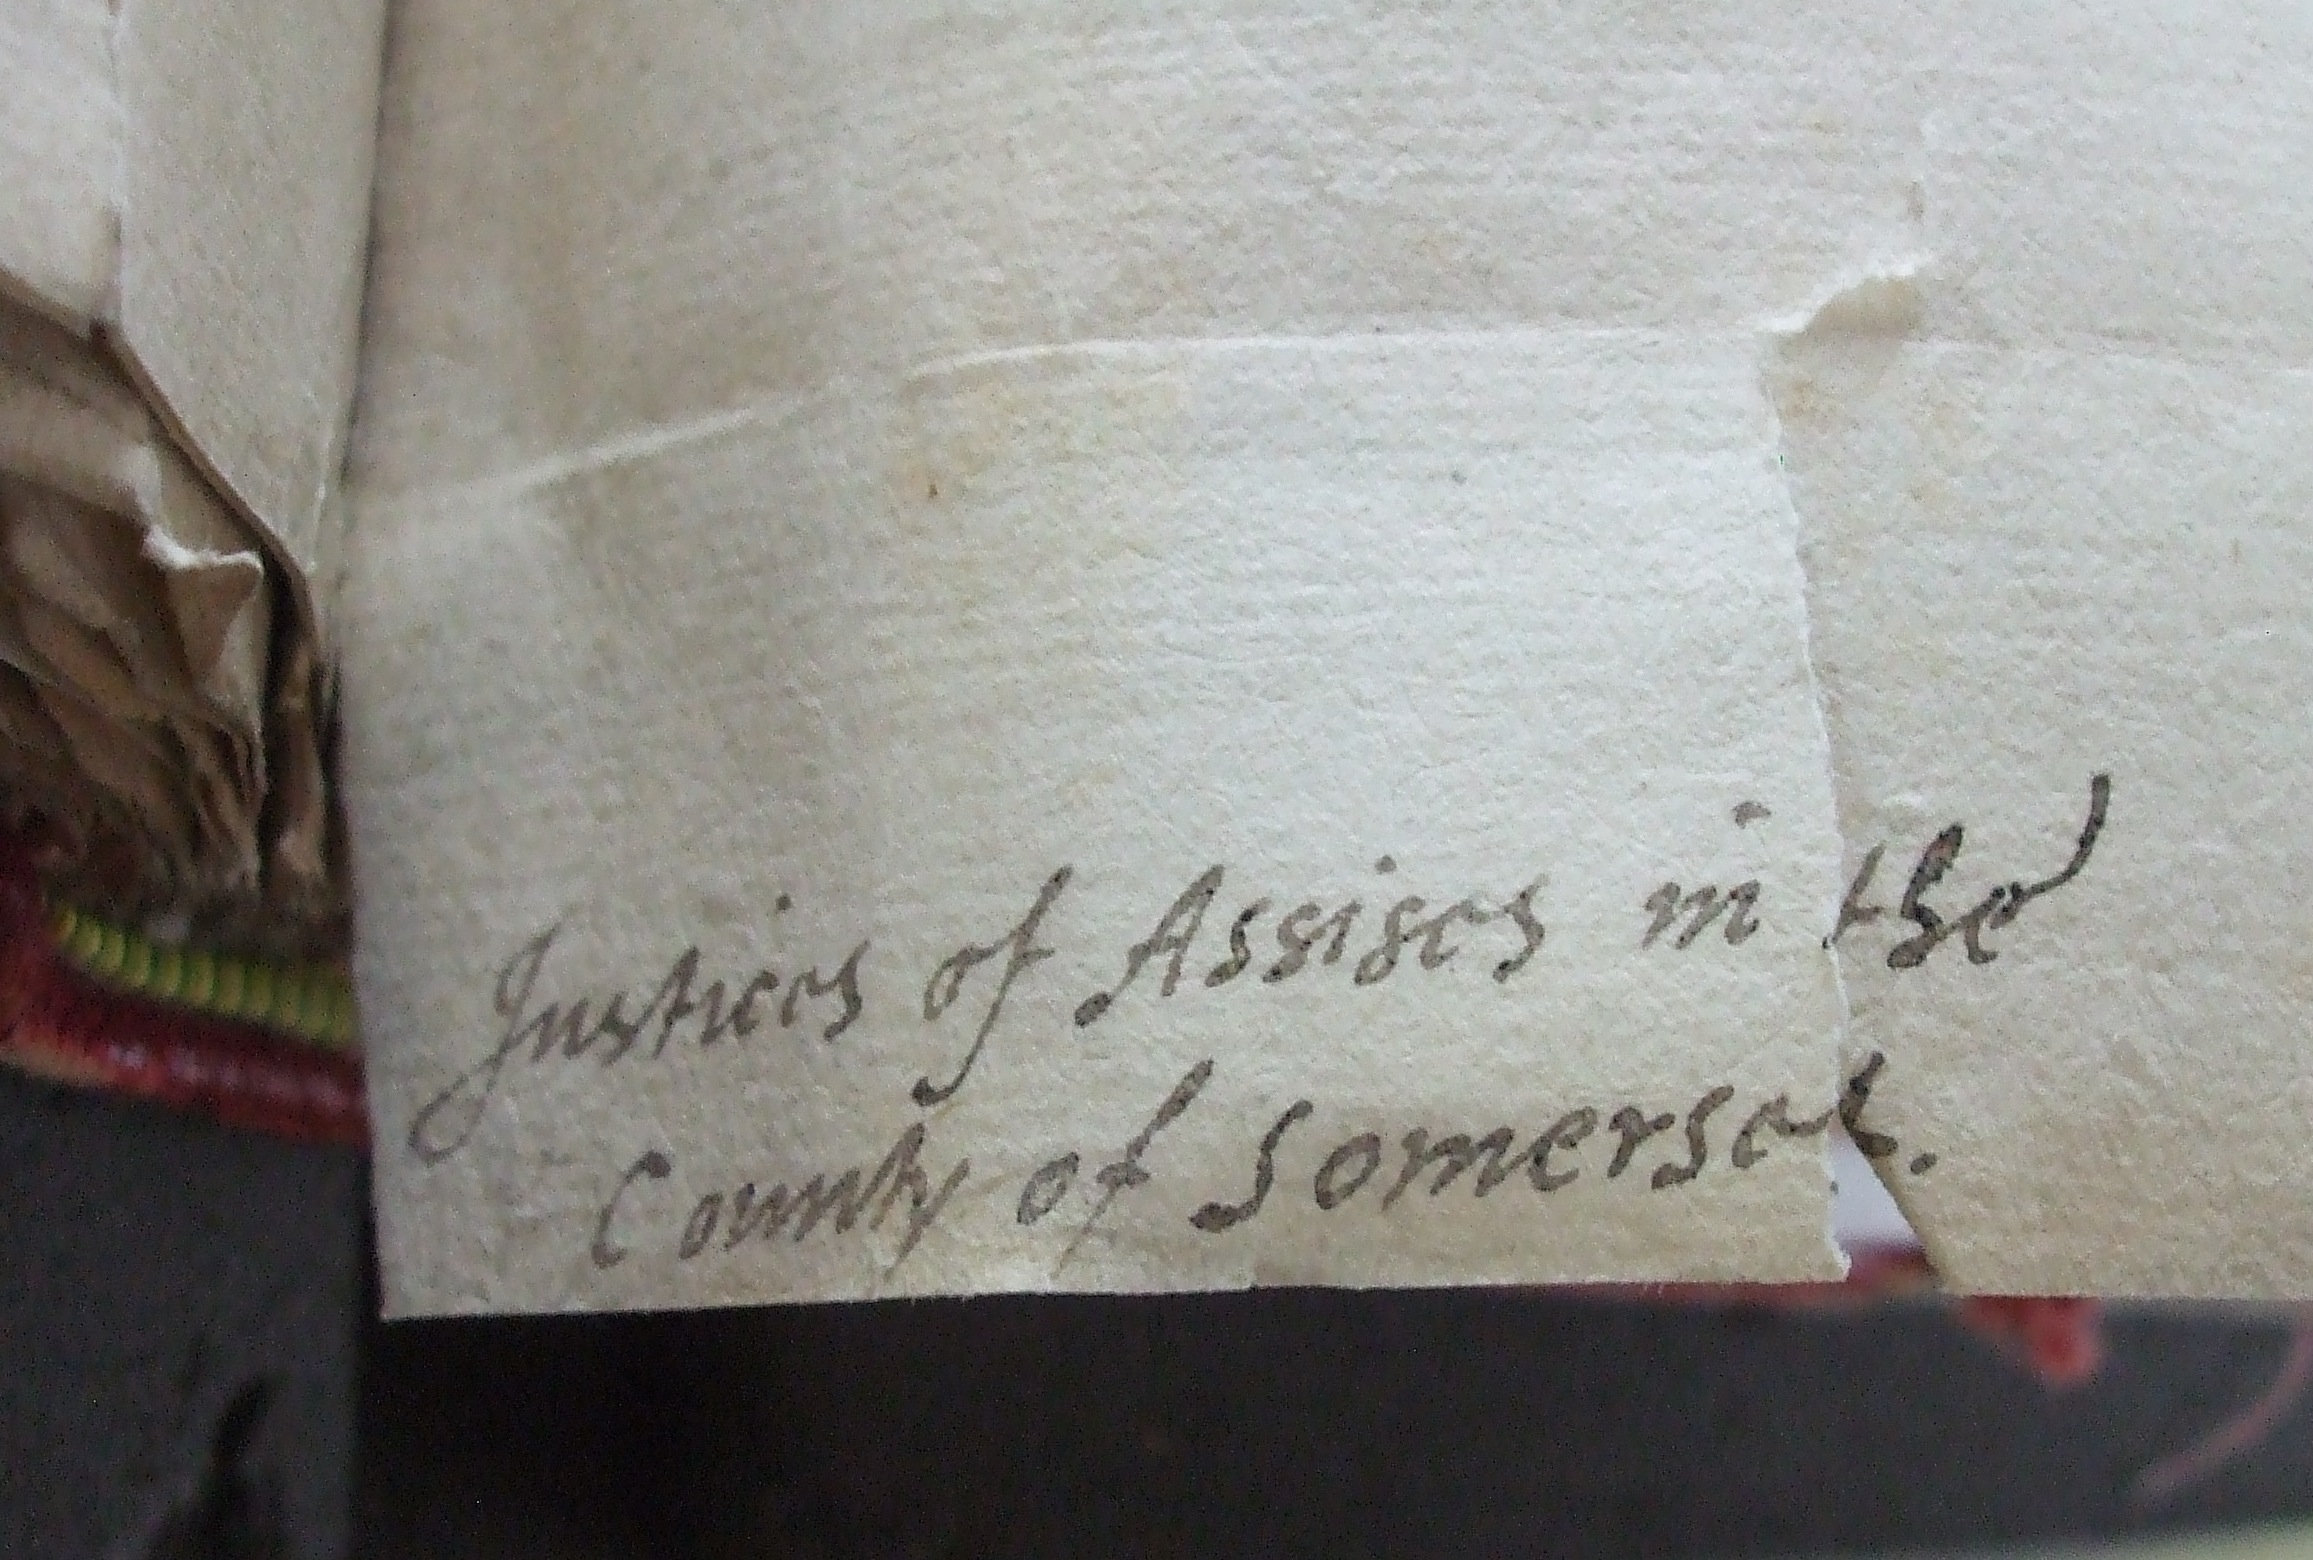 Justices of Assises in the
County of Somerset.